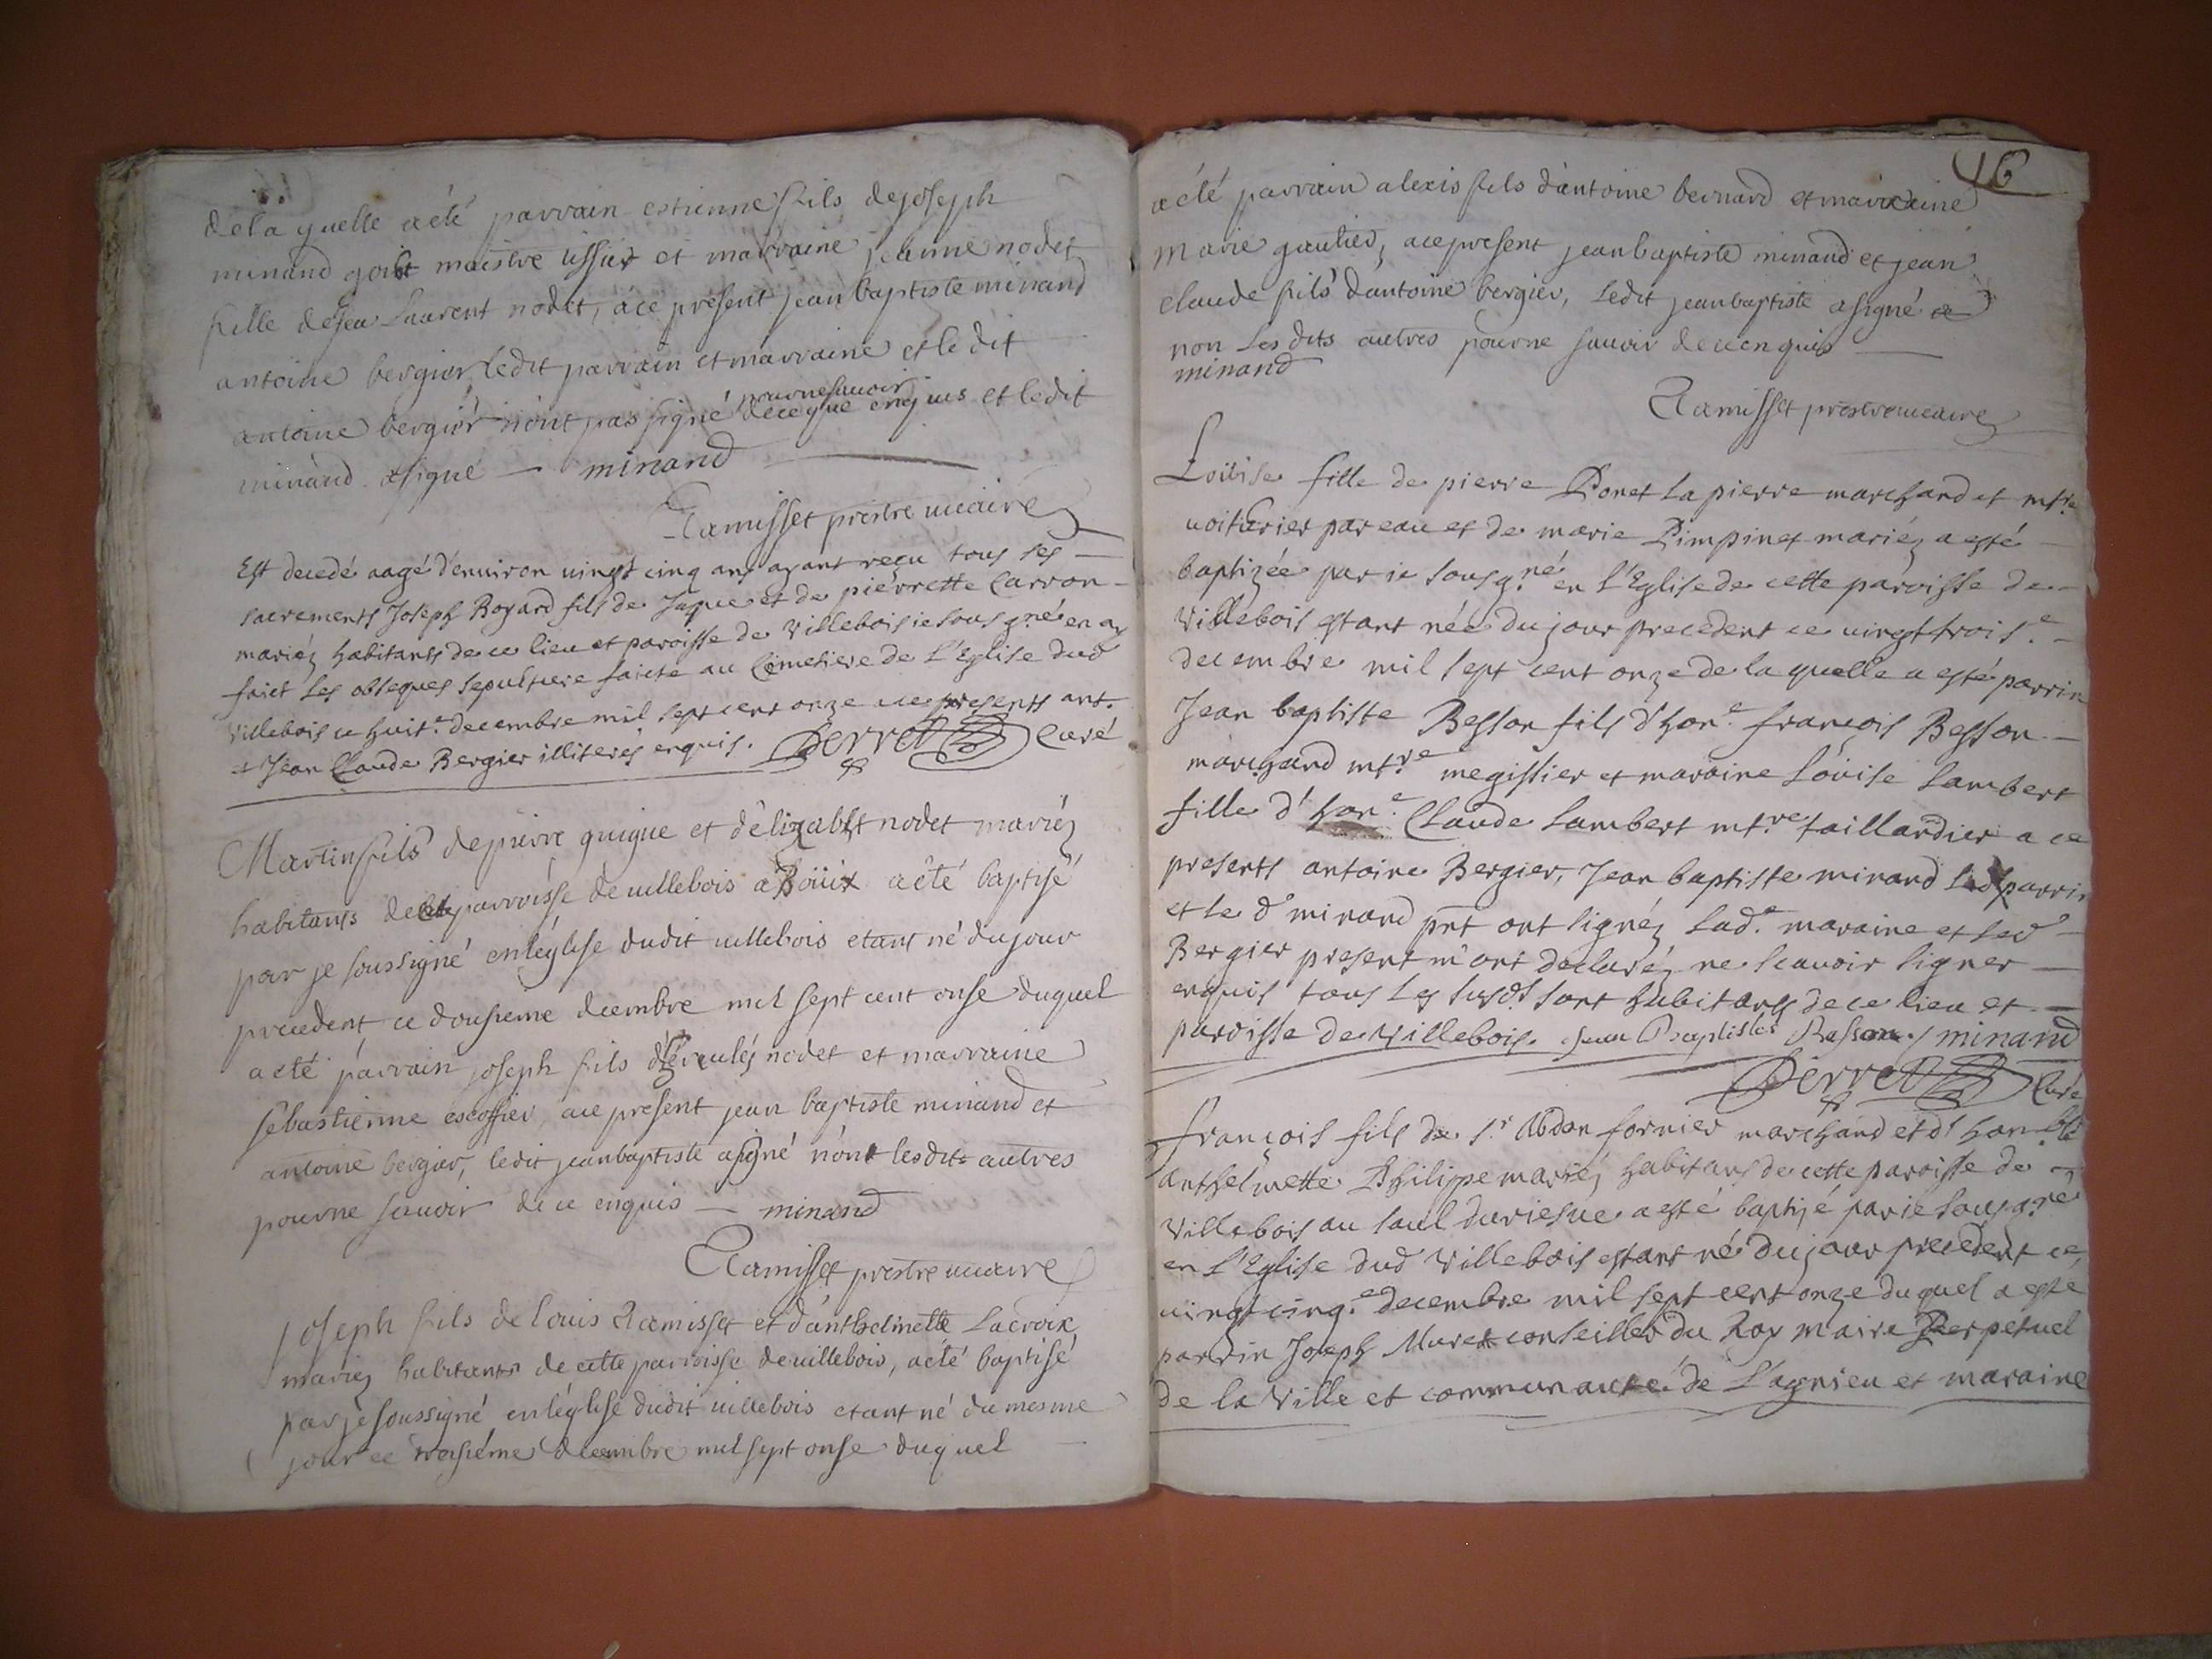 de la quelle a été parrain estienne fils de joseph
minand goibt maistre tissier et marraine jeanne nodet
fille de feu Laurent nodet, a ce present jean baptiste minand
antoine bergier, ledit parrain et marraine et le dit
antoine bergier n'ont pas signé pour ne savoir de ce que enquis et ledit
minand a signé — minand
Ramisset prestre vicaire
Est decedé aagé d'environ vingt cinq ans ayant reçu tous ses
sacrements Joseph Boyard fils de Jaque et de pierrette Carron
mariéz habitants de ce lieu et paroisse de Villebois ie sousg.né en ay
faict les obseques sepulture faicte au Cimetiere de L'Eglise dud
Villebois ce huit.e decembre mil sept cent onze a ce presents ant.
et Jean Claude Bergier illiterés enquis. Perret Curé
Martin fils de pierre guigue et d'élizabht nodet mariéz
habitans de cete parroisse de villebois a Boüix a été baptisé
par je soussigné en léglise dudit villebois etant né du jour
precedent ce dousieme decembre mil sept cent onse duquel
a été parrain joseph fils d'herculés nodet et marraine
sebastienne escoffier, a ce present jean baptiste minand et
antoine bergier, ledit jean baptiste a signé non les dits autres
pour ne scavoir de ce enquis — minand
Ramisset prestre vicaire
joseph fils de louis Ramisset et d'anthelmette Lacroix
mariez habitants de cette parroisse de villebois, a été baptisé
par je soussigné en léglise dudit villebois etant né du mesme
jour ce treisiéme decembre mil sept onse duquel
16
a été parrain alexis fils d'antoine bernard et marraine
marie gautier, a ce present jean baptiste minand et jean
claude fils d'antoine bergier, ledit jean baptiste a signé et
non les dits autres pour ne savoir de ce enquis
minand
Ramisset prestre vicaire
Loüise fille de pierre Ponet La pierre marchand et mtre
voiturier par eau et de marie Pimpinet mariéz a esté
baptizée par ie sousg.né en L'Eglise de cette paroisse de
Villebois estant née du jour precedent ce vingt trois.e
decembre mil sept cent onze de la quelle a esté parrin
Jean baptiste Besson fils d'hon.e françois Besson
marchand mt.re megissier et maraine Loüise Lambert
fille d'hon.e Claude Lambert mt.re taillandier a ce
presents antoine Bergier, Jean baptiste minand led parrin
et le d minand pnt ont signéz lad.e maraine et led
Bergier present m'ont declaréz ne scavoir signer
enquis tous les susdt sont habitants de ce lieu et
paroisse de Villebois. Jean Baptiste Besson / minand
Perret Curé
françois fils de s.r Abdon fornier marchand et d'hon.ble
anthelmette Philippe mariéz habitans de cette paroisse de
Villebois au saul a esté baptizé par ie sousg.né
en L'Eglise dud Villebois estant né du jour precedent ce
vingt cinq.e decembre mil sept cent onze du quel a esté
parrin Joseph Muret conseiller du Roy maire Perpetuel
de la Ville et communauté de Lagnieu et maraine